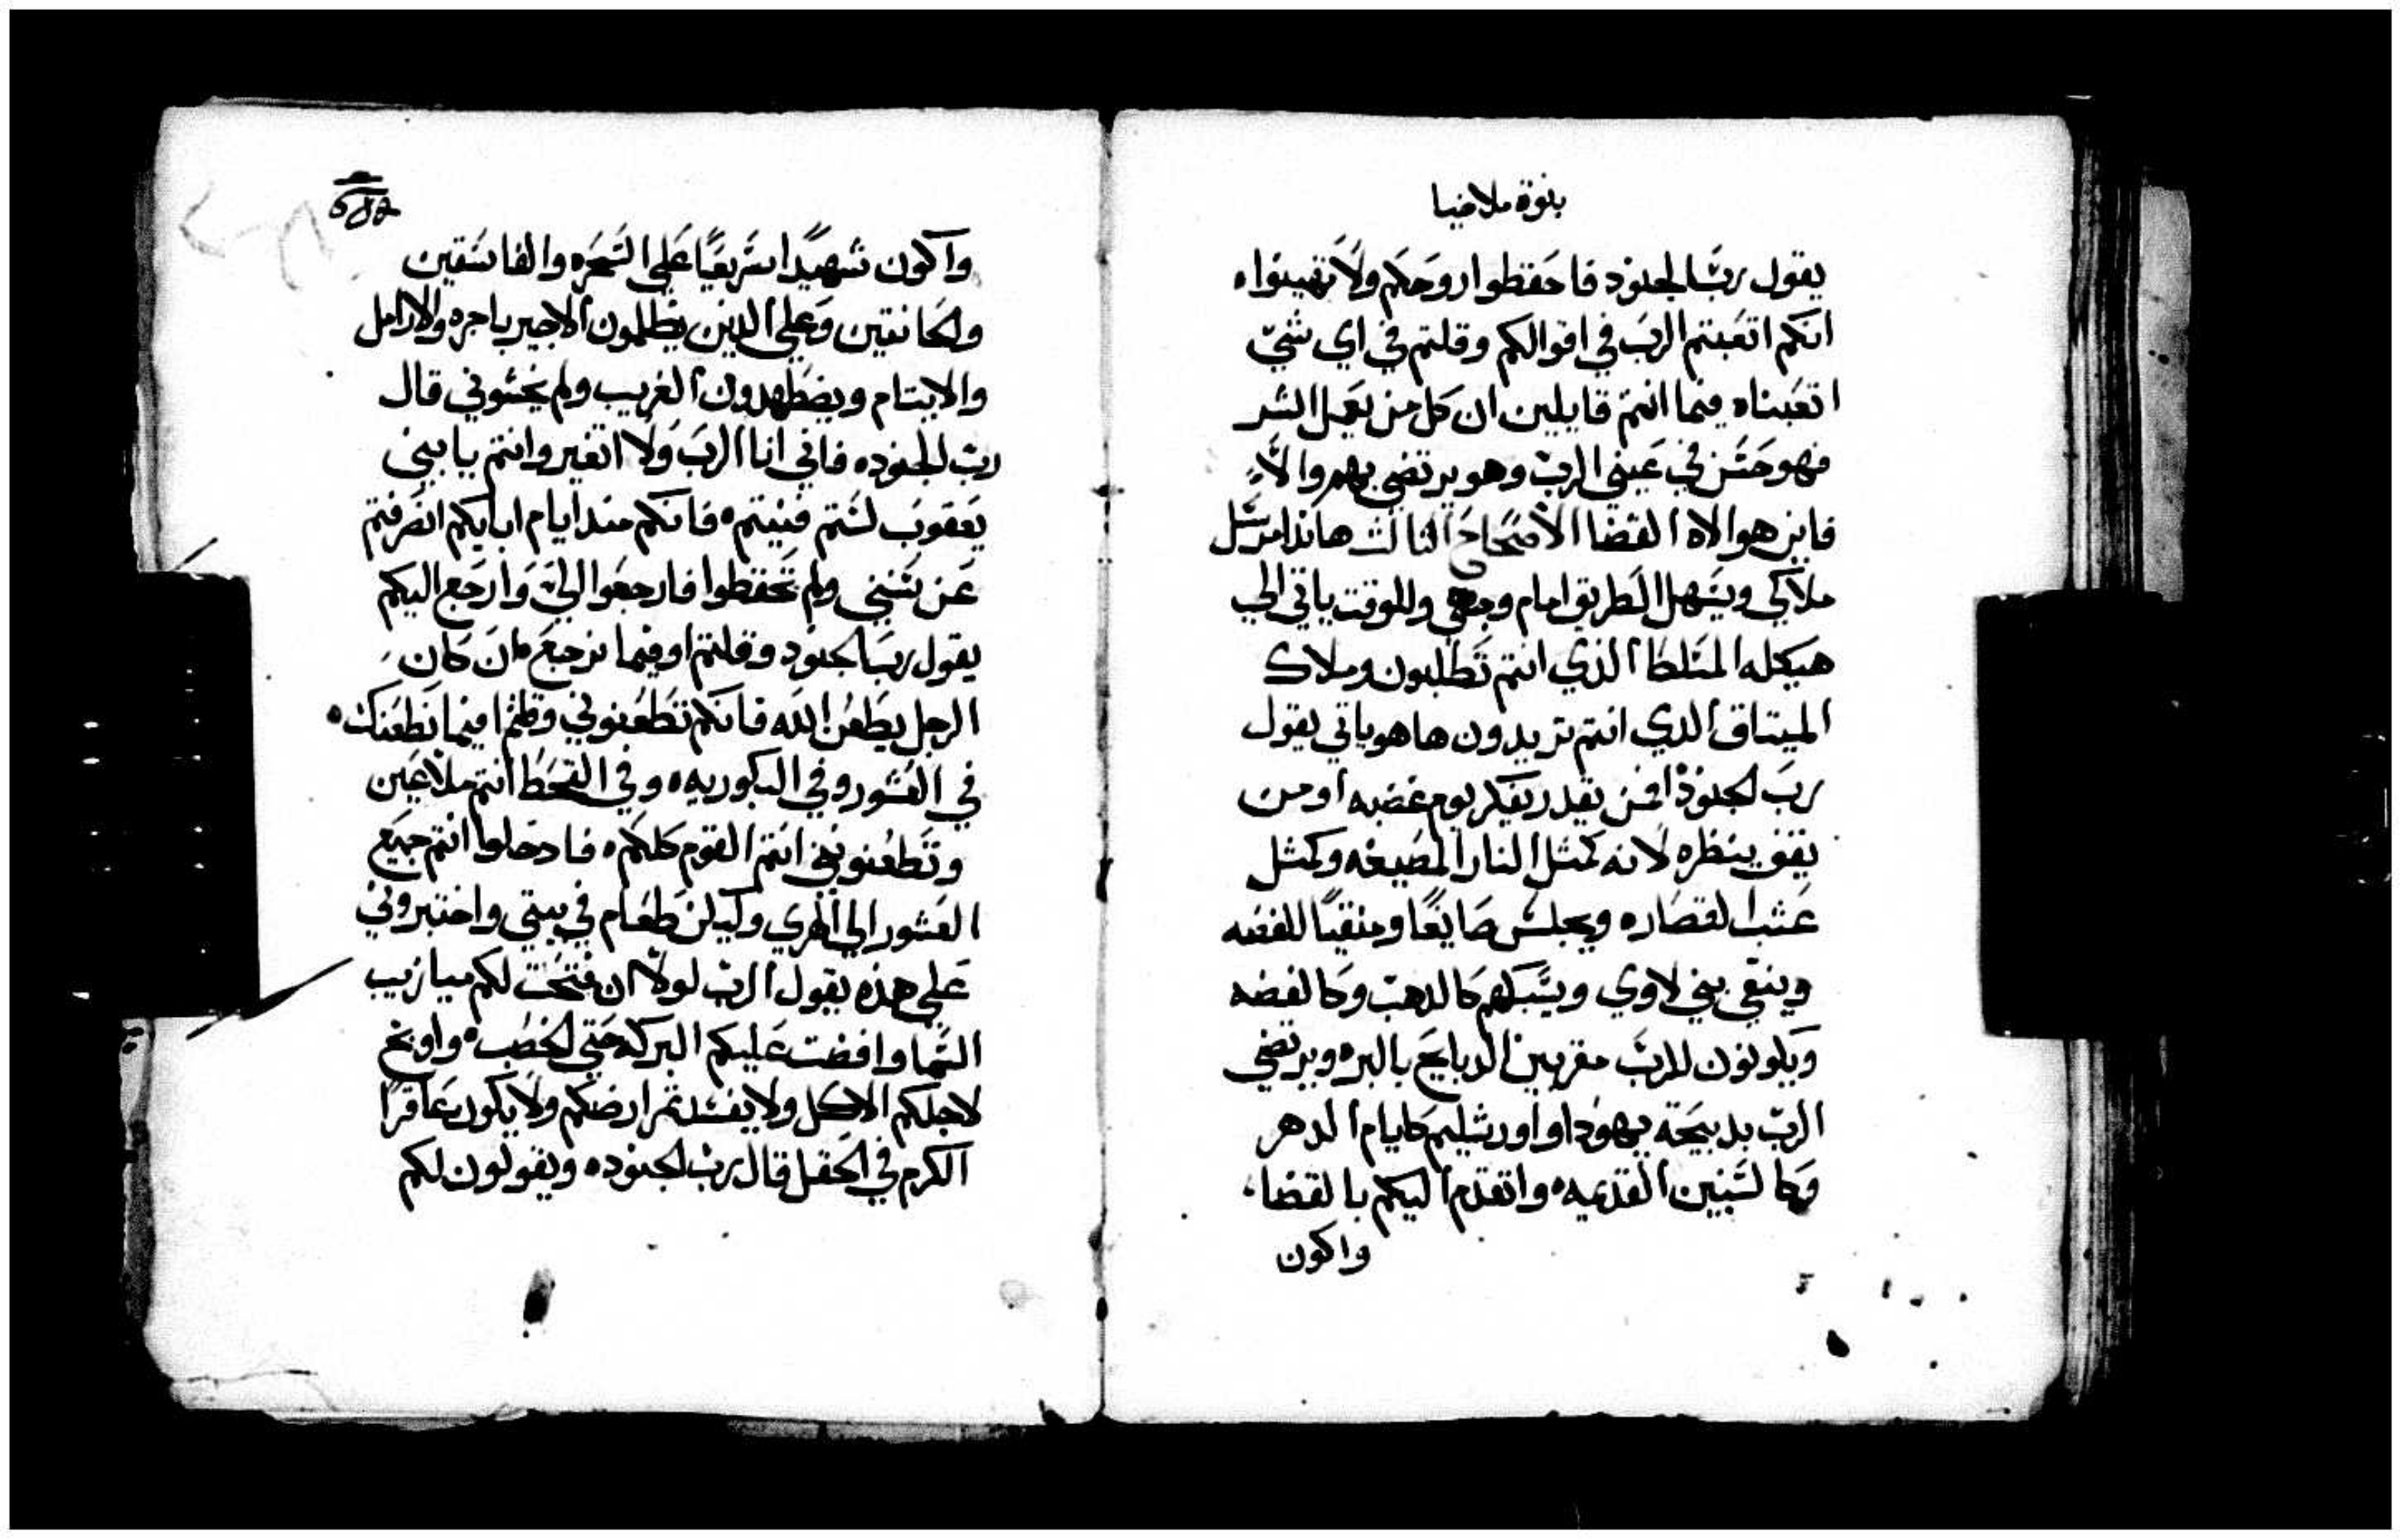 بنوة ملاخيا
يقول رب الجنود فاحفظوا روحكم ولا تهينوا ه
انكم اتعبتم الرب في اقوالكم وقلتم في اي شي
اتعبناه فيما انتم قايلين ان كل من يعمل الشر
فهو حسن في عيني الرب وهو يرتضي بهم والا
فاين هو الاه القضا الاصحاح الثالث هانذا مرسل
ملاكي ويسهل الطريق امام وجهي وللوقت ياتي الي
هيكله المتلطا الذي انتم تطلبون وملاك
الميتاق الدي انتم تريدون ها هو ياتي يقول
رب الجنود فمن يقدر يفكر يوم غضبه او من
يقف ينظره لانه كمثل النار المصيغه وكمثل
عشب القصاره ويجلس صايغًا ومنقيًا للفضه
وينقي بني لاوي ويسبكهم كالدهب وكالفضه
ويكونون للرب مقربين الدبايح بالبر ه ويرتضي
الرب بدبيحة يهودا واورشليم كايام الدهر
وكالسنين القديميه ه واتقدم اليكم بالقضا
واكون
واكون شهيدًا سريعًا على السحره والفاسقين
والحانتين وعلى الدين يظلمون الاجير باجره والارامل
والايتام ويضطهدون الغريب ولم يخشوني قال
رب الجنود ه فاني انا الرب ولا اتغير وانتم يا بني
يعقوب لستم فنيتم ه فانكم مند ايام ابايكم انصرفتم
عن سنني ولم تحفظوا فارجعوا الي وارجع اليكم
يقول رب الجنود وقلتم اوفيما نرجع ه ان كان
الرجل يطعن الله فانكم تطعنوني وقلتم افيما نطعنك ه
في العشور وفي البكوريه ه وفي القحط انتم ملاعين
وتطعنونني انتم القوم كلكم ه فادخلوا انتم جميع
العشور الي الهري وليكن طعام في بيتي واختبروني
على هذه يقول الرب لولا ان فتحت لكم ميازيب
السما وافضت عليكم البركه حتى الخصب ه واوبخ
لاجلكم الاكل ولا يفسد ثمر ارضكم ولا يكون عاقرًا
الكرم في الحقل قال رب الجنود ه ويقولون لكم